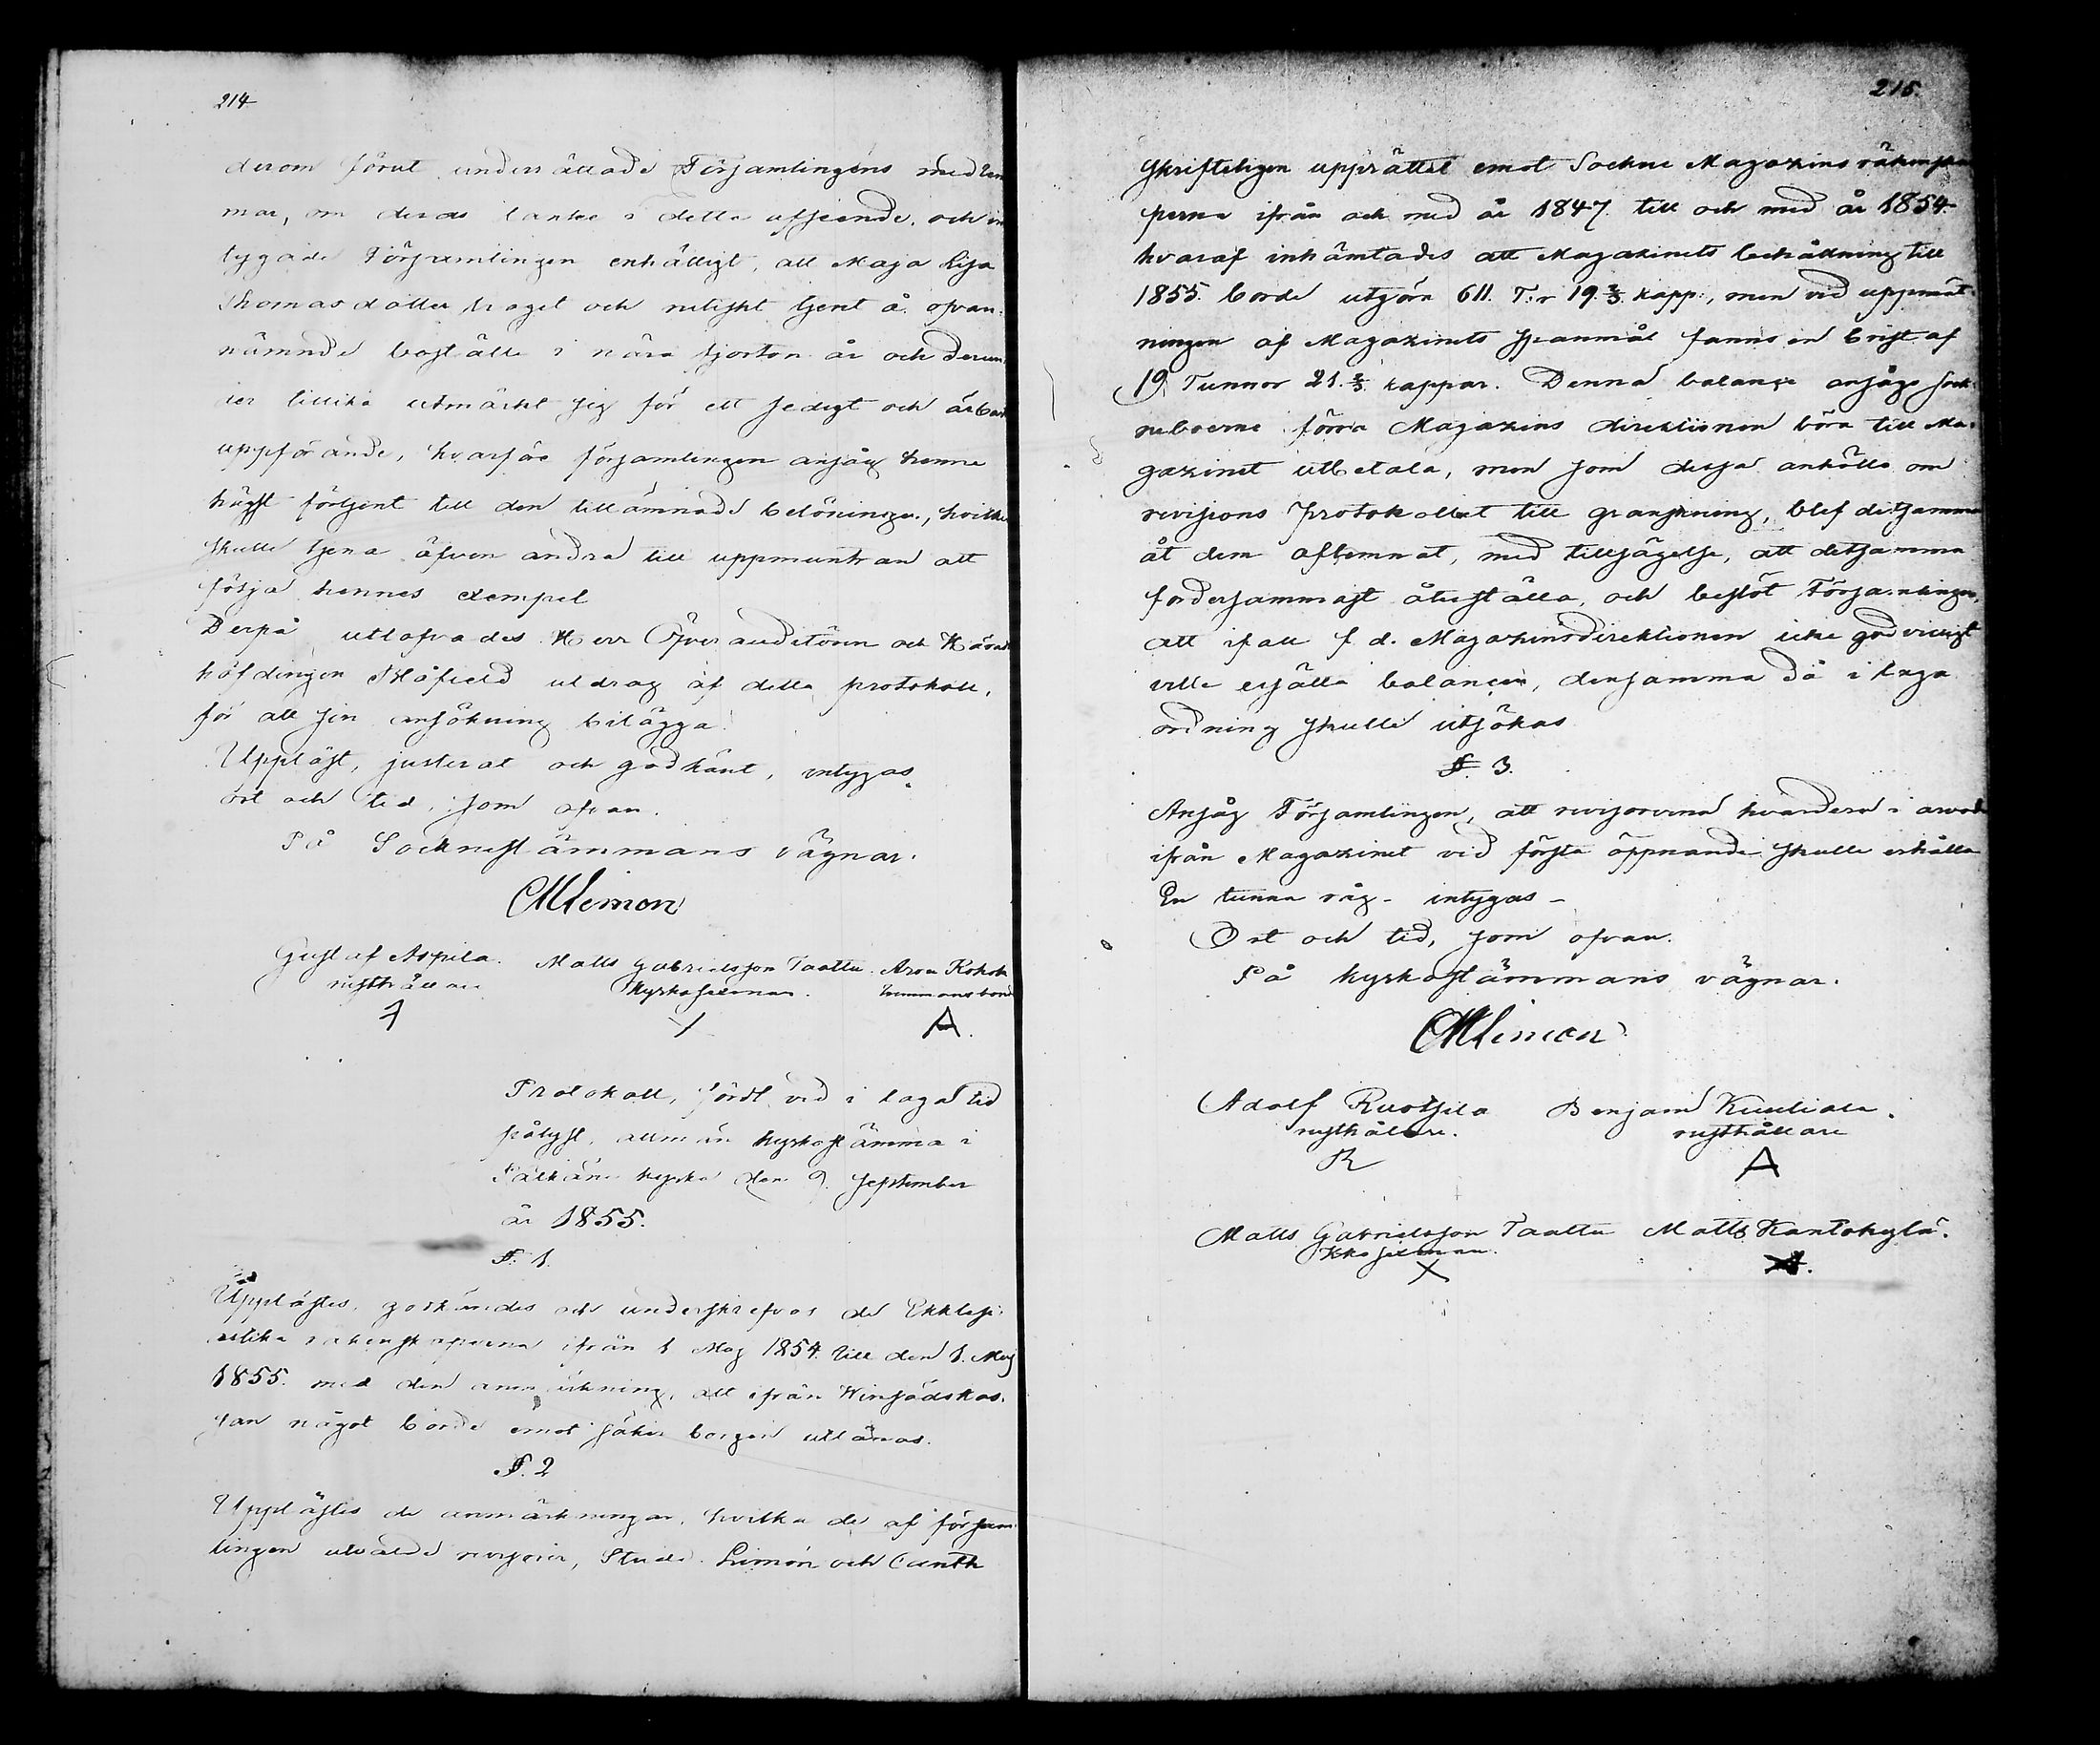 214
derom förut underrättade Församlingens medlem
mar, om deras tanke i detta afseende, och in
tygade Församlingen enhälligt, att Maja Lisa
Thomasdotter troget och redligt tjent å ofvan-
nämnde boställe i nära fjorton år och derun-
der tillika utmärkt sig för ett sedigt och ärbart
uppförande, hvarföre församlingen ansåg henne
högst förtjent till den tillämnade belöningen, hvilken
skulle tjena äfven andra till uppmuntran att
följa hennes exempel
Derpå utlofvades Herr Öfverauditören och Härads
höfdingen utdrag af detta protokoll,
för att sin ansökning bilägga.
Uppläst, justerat och godkänt, intygas
ort och tid, som ofvan.
På Socknestämmans vägnar.
CMLimon
Gustaf Aspila. Matts Gabrielsson Taattu. Aron
rusthållare. Kyrkosexman.
A.
Protokoll, fördt vid i laga tid
pålyst, allmän kyrkostämma i
Pälkäne kyrka den 9. September
år 1855.
§. 1.
Upplästes, godkändes och underskrefvos de Ekklesi-
astika räkenskaperna ifrån 1 Maj 1854. till den 1. Maj
1855. med den anmärkning, att ifrån Winsädskas-
san något borde emot säker borgen utlånas.
§. 2
Upplästes de anmärkningar, hvilka de af försam-
lingen utvalde revisorer, Stud. Limon och Canth
215.
skrifteligen upprättat emot Sockne Magazins räkenska
perne ifrån och med år 1847. till och med år 1854.
hvaraf inhämtades att Magazinets behållning till
1855. borde utgöra 611. T:r 19. 2/3 kapp:, men vid uppmät
ningen af Magazinets spanmål fanns en brist af
19. Tunnor 21. 2/3. kappar. Denna balance ansågo sock-
neboerne förra Magazins direktionen böra till Ma-
gazinet utbetala, men som dessa anhöllo om
revisions protokollet till granskning, blef detsamma
åt dem aflemnat, med tillsägelse, att detsamma
fordersammast återställa, och beslöt Församlingen,
att ifall f. d. Magazinsdirektionen icke godvilligt
ville ersätta balancen, densamma då i laga
ordning skulle utsökas
§. 3.
Ansåg Församlingen, att revisorerna hvardera i arvode
ifrån Magazinet vid första öppnande skulle erhålla
En tunna råg - intygas -
Ort och tid, som ofvan.
På kyrkostämmans vägnar.
CMLimon
Adolf Ruotsila Benjam Kuuliala.
rusthållare. rusthållare
R A
Matts Gabrielsson Taattu Matts Kantokylä.
Kko sexman.
X